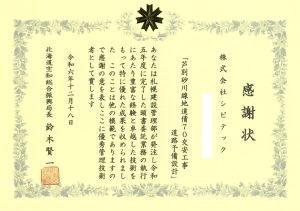 感謝状
株式会社シビテック
「芦別砂川線地道債70交安工事
道路予備設計」
あなたは札幌建設管理部が発注し令和
五年度に完了した頭書委託業務の執行
にあたり豊富な経験と卓越した技術を
もって特に優れた成果を収められまし
た このことは他の模範でありますの
で感謝の意を表しここに優秀管理技術
者として賞します
令和六年十二月十八日
北海道空知総合振興局長 鈴木賢一